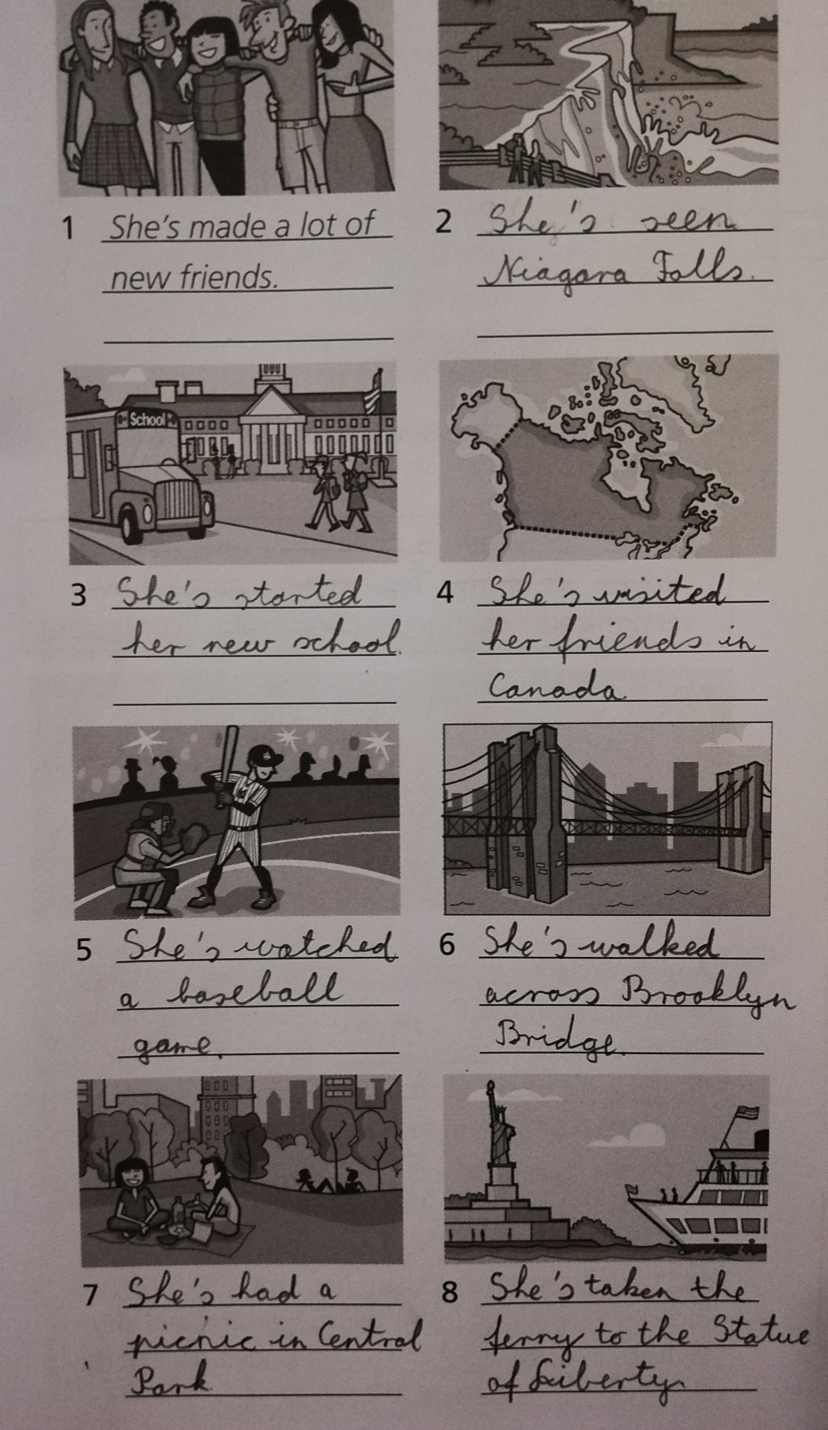 1 She's made a lot of
new friends.
2 She's seen
Niagara Falls.
School
3 She's started
her new school.
4 She's visited
her friends in
Canada.
5 She's watched
a baseball
game.
6 She's walked
across Brooklyn
Bridge.
7 She's had a
picnic in Central
Park
8 She's taken the
ferry to the Statue
of Liberty